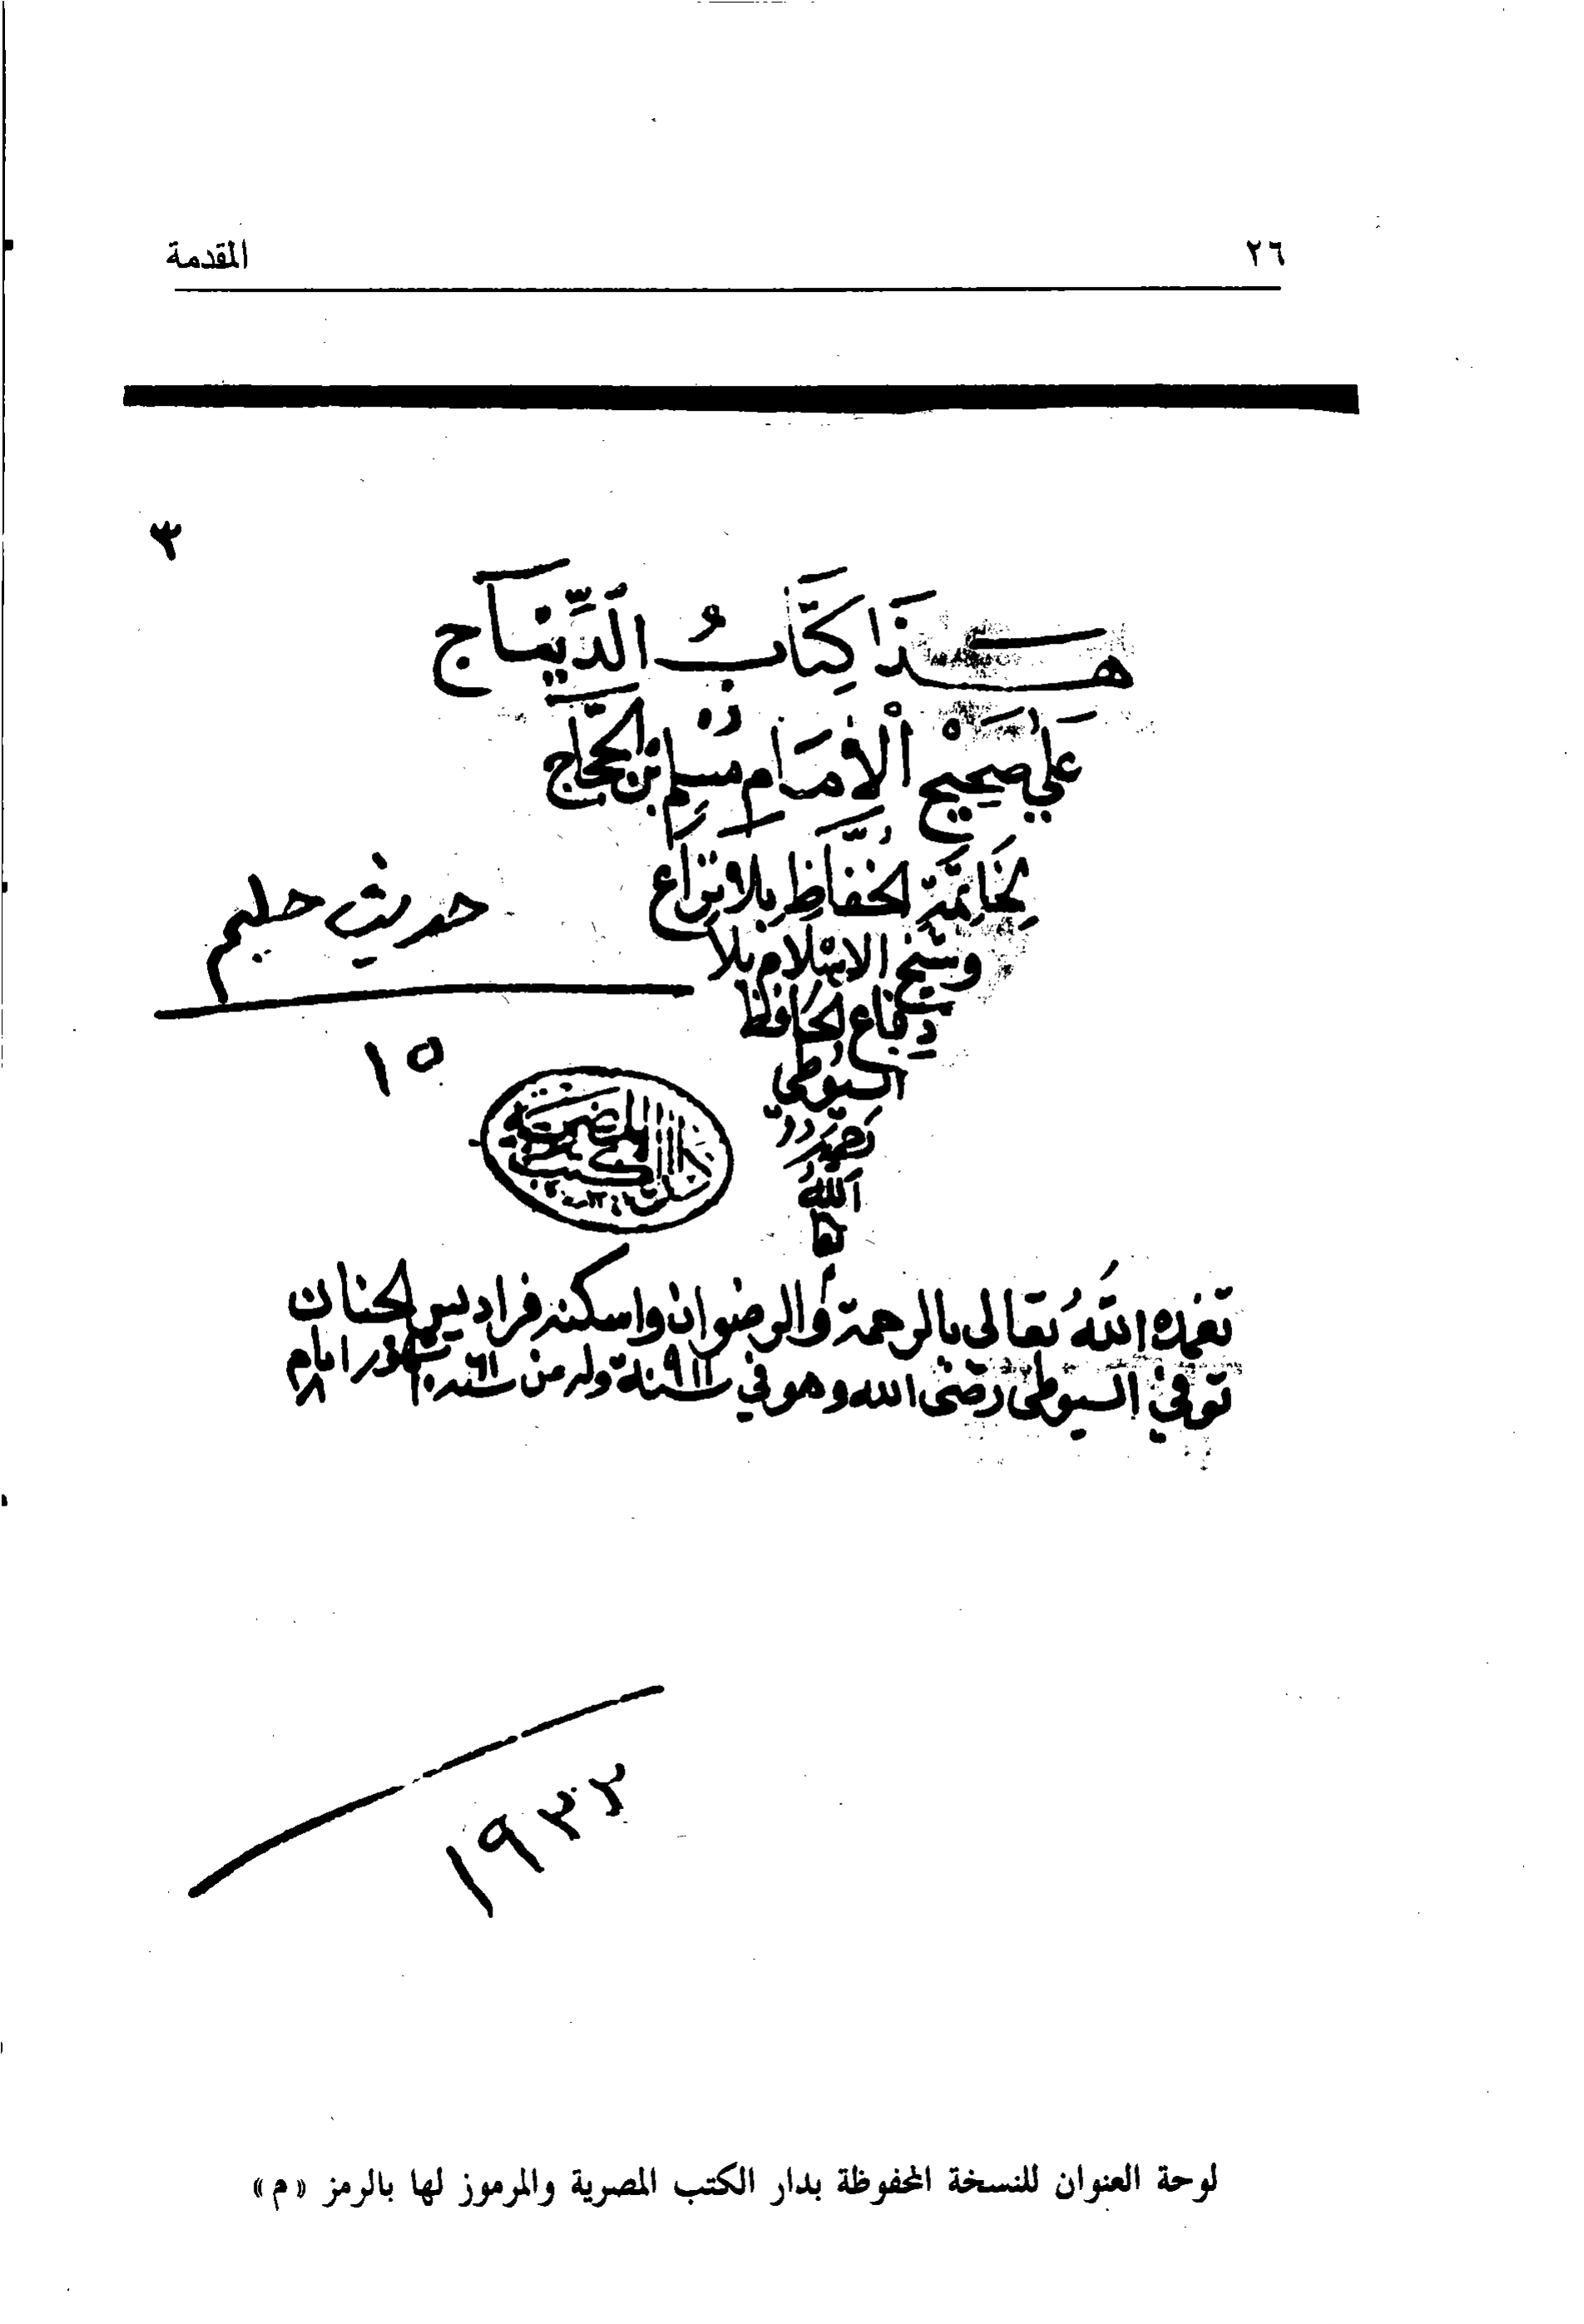 ٢٦
المقدمة
٣
هَذَا كِتَابُ الدِّيبَاج
عَلَي صَحِيحِ الْإِمَامِ مُسْلِمِ بْنِ الحَجَّاج
لِخَاتِمَةِ الحُفَّاظِ بِلَا نِزَاع
وشيخ الاسلام بلا
دِفَاع الحَافظ
السيوطي
الله
حديث حليم
١٥
تغمده اللَّهُ تعالى بالرحمة والرضوان واسكنه فراديس الجنان
توفي السيوطى رضى الله وهو في سنة ٩١١ وله من سنه ٦١ شهور ١٠ ايام ١٨
١٩٣٢
لوحة العنوان للنسخة المحفوظة بدار الكتب المصرية والمرموز لها بالرمز «م»